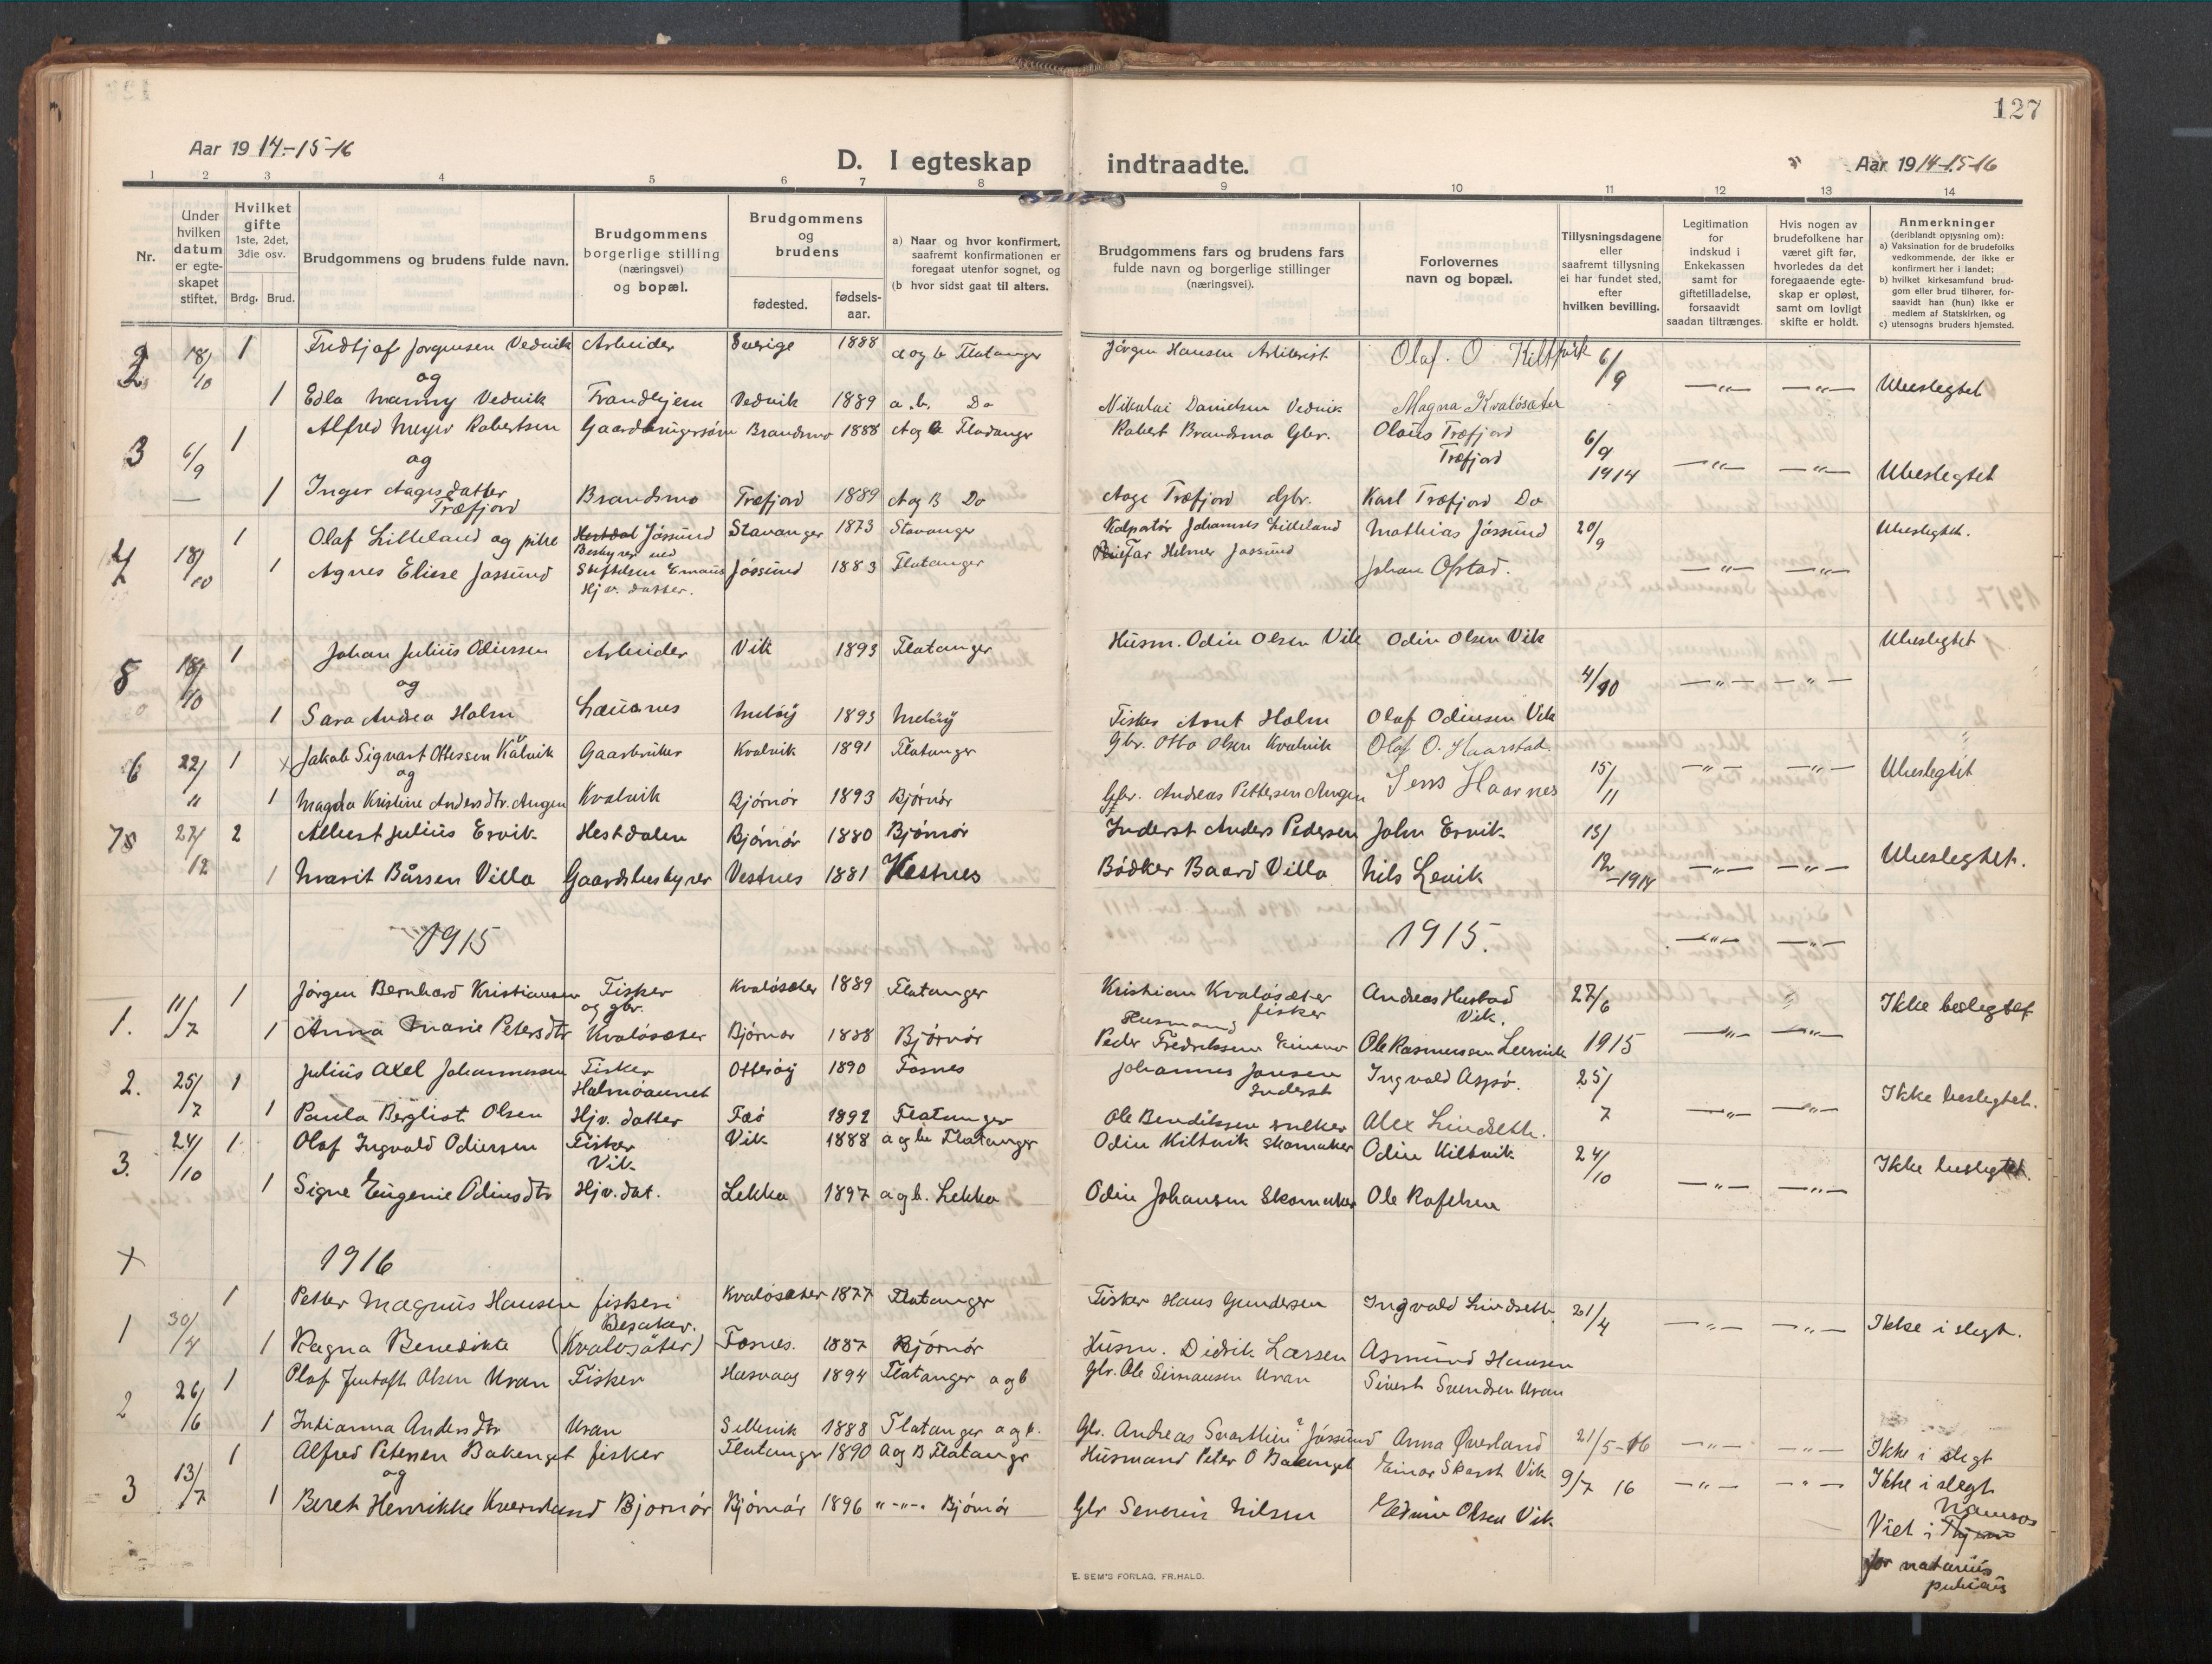 127
Aar 19 14-15-16
D. I egteskap indtraadte.
Aar 19 14-15-16
1 2 3 4 5 6 7 8 9 10 11 12 13 14
Nr.
Under hvilken datum er egte-skapet stiftet.
Hvilket gifte 1ste, 2det, 3die osv.
Brdg. Brud.
Brudgommens og brudens fulde navn.
Brudgommens borgerlige stilling (næringsvei) og bopæl.
Brudgommens og brudens
fødested.
fødsels-aar.
a) Naar og hvor konfirmert, saafremt konfirmationen er foregaat utenfor sognet, og
(b hvor sidst gaat til alters.
Brudgommens fars og brudens fars fulde navn og borgerlige stillinger (næringsvei).
Forlovernes navn og bopæl.
Tillysningsdagene eller saafremt tillysning ei har fundet sted, efter hvilken bevilling.
Legitimation for indskud i Enkekassen samt for giftetilladelse, forsaavidt saadan tiltrænges.
Hvis nogen av brudefolkene har været gift før, hvorledes da det foregaaende egte-skap er opløst, samt om lovligt skifte er holdt.
Anmerkninger (deriblandt opysning om):
a) Vaksination for de brudefolks vedkommende, der ikke er konfirmert her i landet;
b) hvilket kirkesamfund brud-gom eller brud tilhører, for-saavidt han (hun) ikke er medlem af Statskirken, og
c) utensogns bruders hjemsted.
2 18/10 1 Fridtjof Jørgensen Vedvik Arbeider Sverige 1888 a og b Flatanger Jørgen Hansen Olaf. O. Kiltvik 6/9
og
1 Edla Nanny Vedvik Trondhjem Vedvik 1889 a.b. Do Nikolai Danielsen Vedvik Magna Kvaløsæter —"— —"— Ubeslegtet
3 6/9 1 Alfred Meyer Robertsen Gaardbrugersøn Brandsmo 1888 A og B Flatanger Robert Brandsmo Gbr. Olaus Træfjord Træfjord 6/9 1914
og
1 Inger Aagesdatter Træfjord Brandsmo Træfjord 1889 A og B Do Aage Træfjord Gbr. Karl Træfjord Do —"— —"— Ubeslegtet
4 18/10 1 Olaf Lilleland og pike Jøssund Stavanger 1873 Stavanger Kolportør Johannes Lilleland Mathias Jøssund 20/9 Ubeslegtet.
Bestyrer ved
1 Agnes Eliese Jøssund Stiftelsen Emaus Jøssund 1883 Flatanger Helmer Jøssund Johan Opstad. —"— —"—
Hjv. datter.
5 18/10 1 Johan Julius Odinsen Arbeider Vik 1893 Flatanger Husm. Odin Olsen Vik Odin Olsen Vik Ubeslegtet
og 4/10 —"— —"—
1 Sara Andrea Holm Lauvnes Meløy 1893 Meløy Fisker Arnt Holm Olaf Odinsen Vik
6 22/11 1 x Jakob Sigvart Ottessen Kålvik Gaarbruker Kvalvik 1891 Flatanger Gbr. Otto Olsen Kvalvik Olaf O. Haarstad
og 15/11 —"— —"— Ubeslegtet
1 Magda Kristine Andersdtr. Angen Kvalvik Bjørnør 1893 Bjørnør Gbr. Andreas Pettersen Angen Jens Haarnes
7 27/12 2 Albert Julius Ervik Hestdalen Bjørnør 1880 Bjørnør Inderst Anders Pedersen John Ervik 13/12-1914
1 Marit Bårsen Villa Gaardsbestyrer Vestnes 1881 Vestnes Bødker Baard Villa Nils Levik —"— —"— Ubeslegtet.
1915
1915.
—"— —"—
1. 11/7 1 Jørgen Bernhard Kristiansen Fisker og gbr. Kvaløsæter 1889 Flatanger Kristian Kvaløsæter fisker Andreas Hustad Vik. 27/6 Ikke beslegtet
Husmand
1 Anna Marie Petersdtr Kvaløsæter Bjørnør 1888 Bjørnør Peder Fredriksen Ole Rasmussen Leervik 1915 —"— —"—
2. 25/7 1 Julius Axel Johannessen Fisker Holmoaunet Otterøy 1890 Fosnes Johannes Jansen Inderst Ingvald Aspø. 25/7
1 Paula Bergliot Olsen Hjv. datter Faø 1892 Flatanger Ole Bendiksen Alex Lindseth. —"— —"— Ikke beslegtet.
3. 24/10 1 Olaf Ingvald Odinsen Fisker Vik Vik 1888 a og b Flatanger Odin Kiltvik skomaker Odin Kiltvik 24/10
1 Signe Eugenie Odinsdtr Hjv. dat. Lekka 1897 a og b. Lekka Odin Johansen Skomaker Ole Rafelsen —"— —"— Ikke beslegtet.
x 1916
1 30/4 1 Petter Magnus Hansen fisker i Besaker. Kvaløsæter 1877 Flatanger Fisker Hans Gundersen Ingvald Lindseth 21/4 —"— —"— Ikke i slegt.
1 Ragna Benedikte (Kvaløsäter) Fosnes. 1887 Bjørnør Husm. Didrik Larsen Asmund Hansen
2 26/6 1 Olaf Olsen Uran Fisker Hasvaag 1894 Flatanger a og b Gbr. Ole Simansen Uran Sivert Svendsen Uran
1 Julianna Andersdtr Uran Sellevik 1888 Flatanger a og b. Gbr. Andreas Jøssund Anna Øverland 21/5-16 —"— —"— Ikke i slegt
3 13/7 1 Alfred Petersen Bakenget fisker Flatanger 1890 A og B Flatanger Husmand Peter O Bakenget Einar Vik 9/7 16 —"— —"— Ikke i slegt
og
1 Beret Henrikke Kvernland Bjørnør Bjørnør 1896 "-"-" Bjørnør Gbr Severin Nilsen Edvin Olsen Vik
Viet i Namsos
for notarius publicus
E. SEM'S FORLAG, FR.HALD.